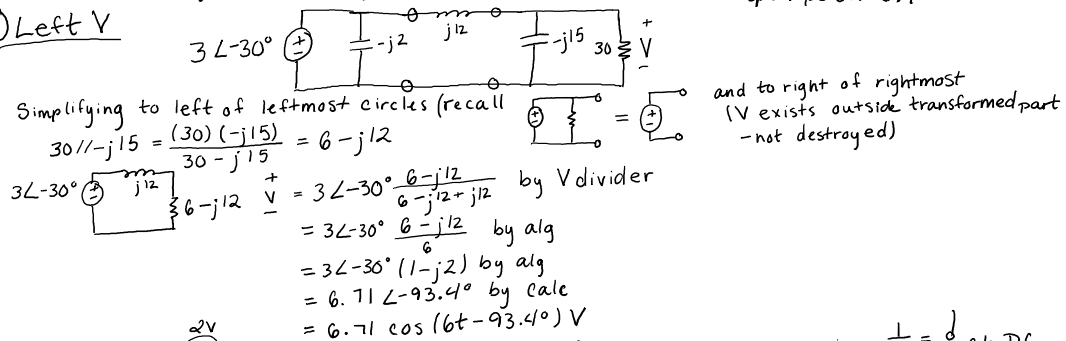 ) Left V
3∠-30° -j2 j12 -j15 30 + V -
Simplifying to left of leftmost circles (recall = and to right of rightmost
(V exists outside transformed part
- not destroyed)
30//-j15 = (30)(-j15) / 30-j15 = 6-j12
3∠-30° j12 6-j12 + V - = 3∠-30° 6-j12 / 6-j12+j12 by V divider
= 3∠-30° 6-j12 / 6 by alg
= 3∠-30° (1-j2) by alg
= 6.71∠-93.4° by calc
= 6.71 cos(6t-93.4°) V
2V